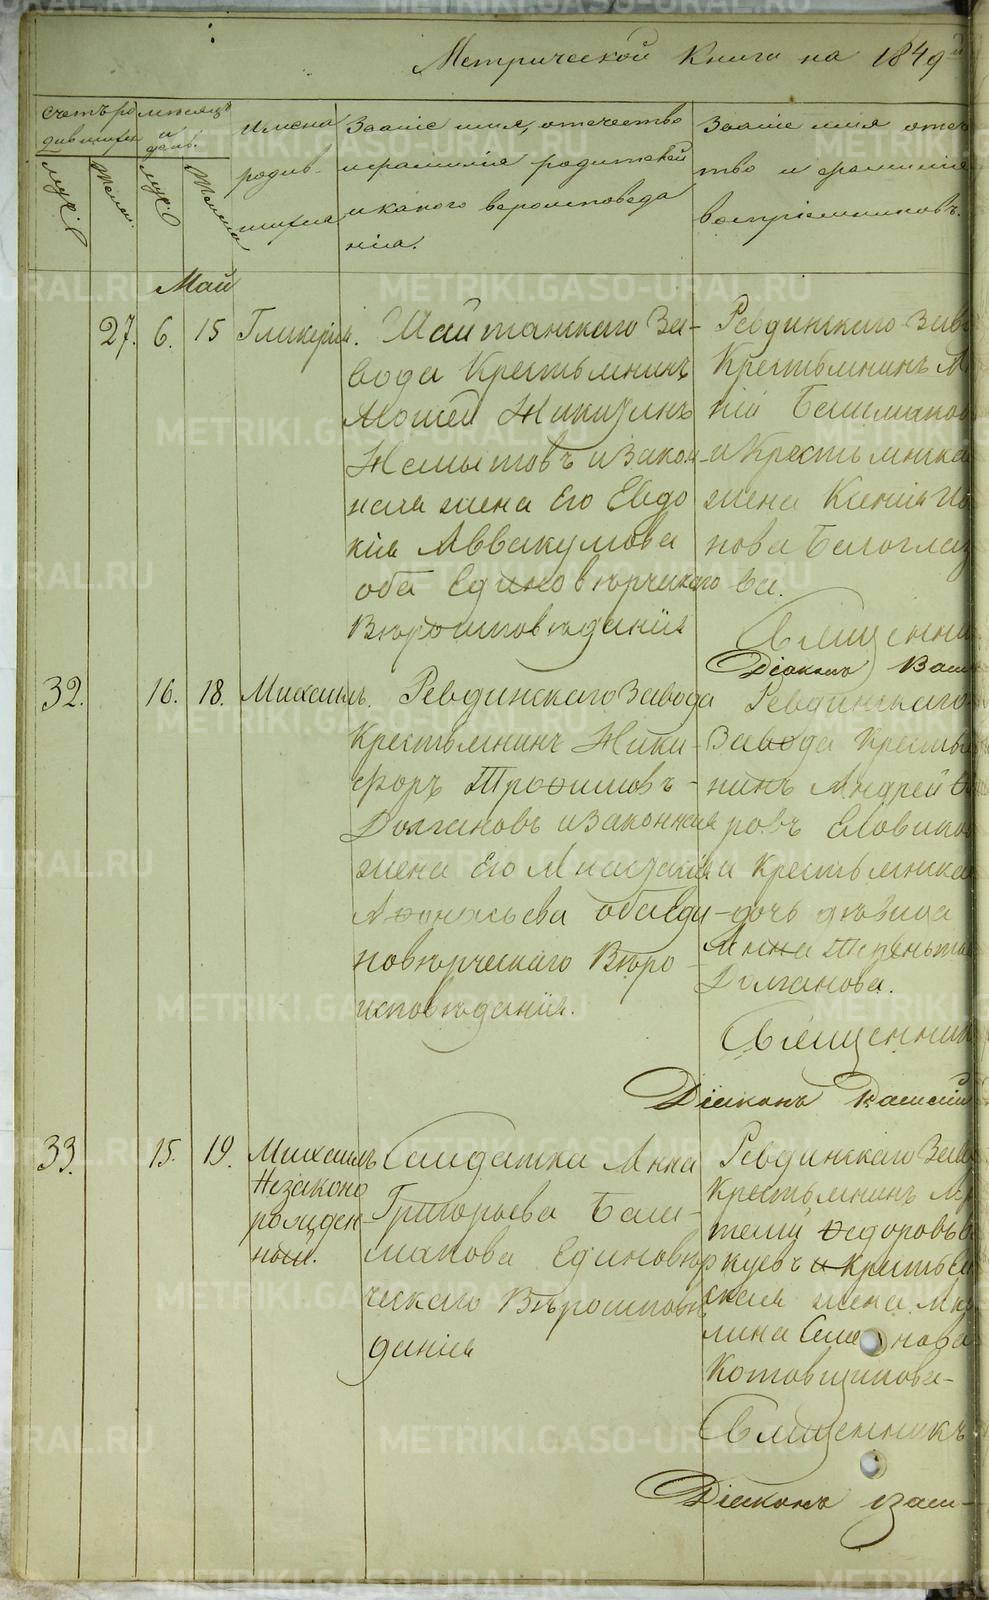 Метрической Книги на 1849й
Счетъ ро
дившихся
месяцъ
и
день.
Имена
родив-
шихся
Звание имя, отечество
и фамилия родителей
и какого вероисповеда
ния.
Звание имя отече
ство и фамилия
восприемниковъ.
муж.
женс.
Май
27. 6. 15 Гликерия. Шайтанскаго За-
вода Крестьянинъ
Мосей Никулинъ
Немытовъ и Закон
ная жена Его Евдо
кия Аввакумова
оба Единоверческаго
Вероисповедания
Ревдинскаго Заво
Крестьянинъ
Башмаков
и Крестьянска
жена Ксения
нова Белоглаз
ва.
Священни
Дiаконъ Васи
32. 16. 18. Михаилъ. Ревдинскаго Завода
Крестьянинъ Ники-
форъ Трофимовъ
Долгановъ и Законная
жена Его Анастасия
Афонасьева оба Еди
новерческаго Веро
исповедания.
Ревдинскаго
Завода Крестья
нинъ Андрей
ровъ Еловико
и Крестьянска
дочь девица
Анна Терентье
Долганова.
Священник
Дiаконъ Васили
33. 15. 19. Михаилъ
Незаконо
рожден-
ный.
Салдатка Анна
Григорьева Баш-
макова Единовер
ческаго Вероиспове
дания
Ревдинскаго Заво
Крестьянинъ Ар
темий Федоровъ
и Крестья
ская жена Аку
лина Семенова
Котовщикова-
Священникъ
Дiаконъ Васи-
METRIKI.GASO-URAL.RU